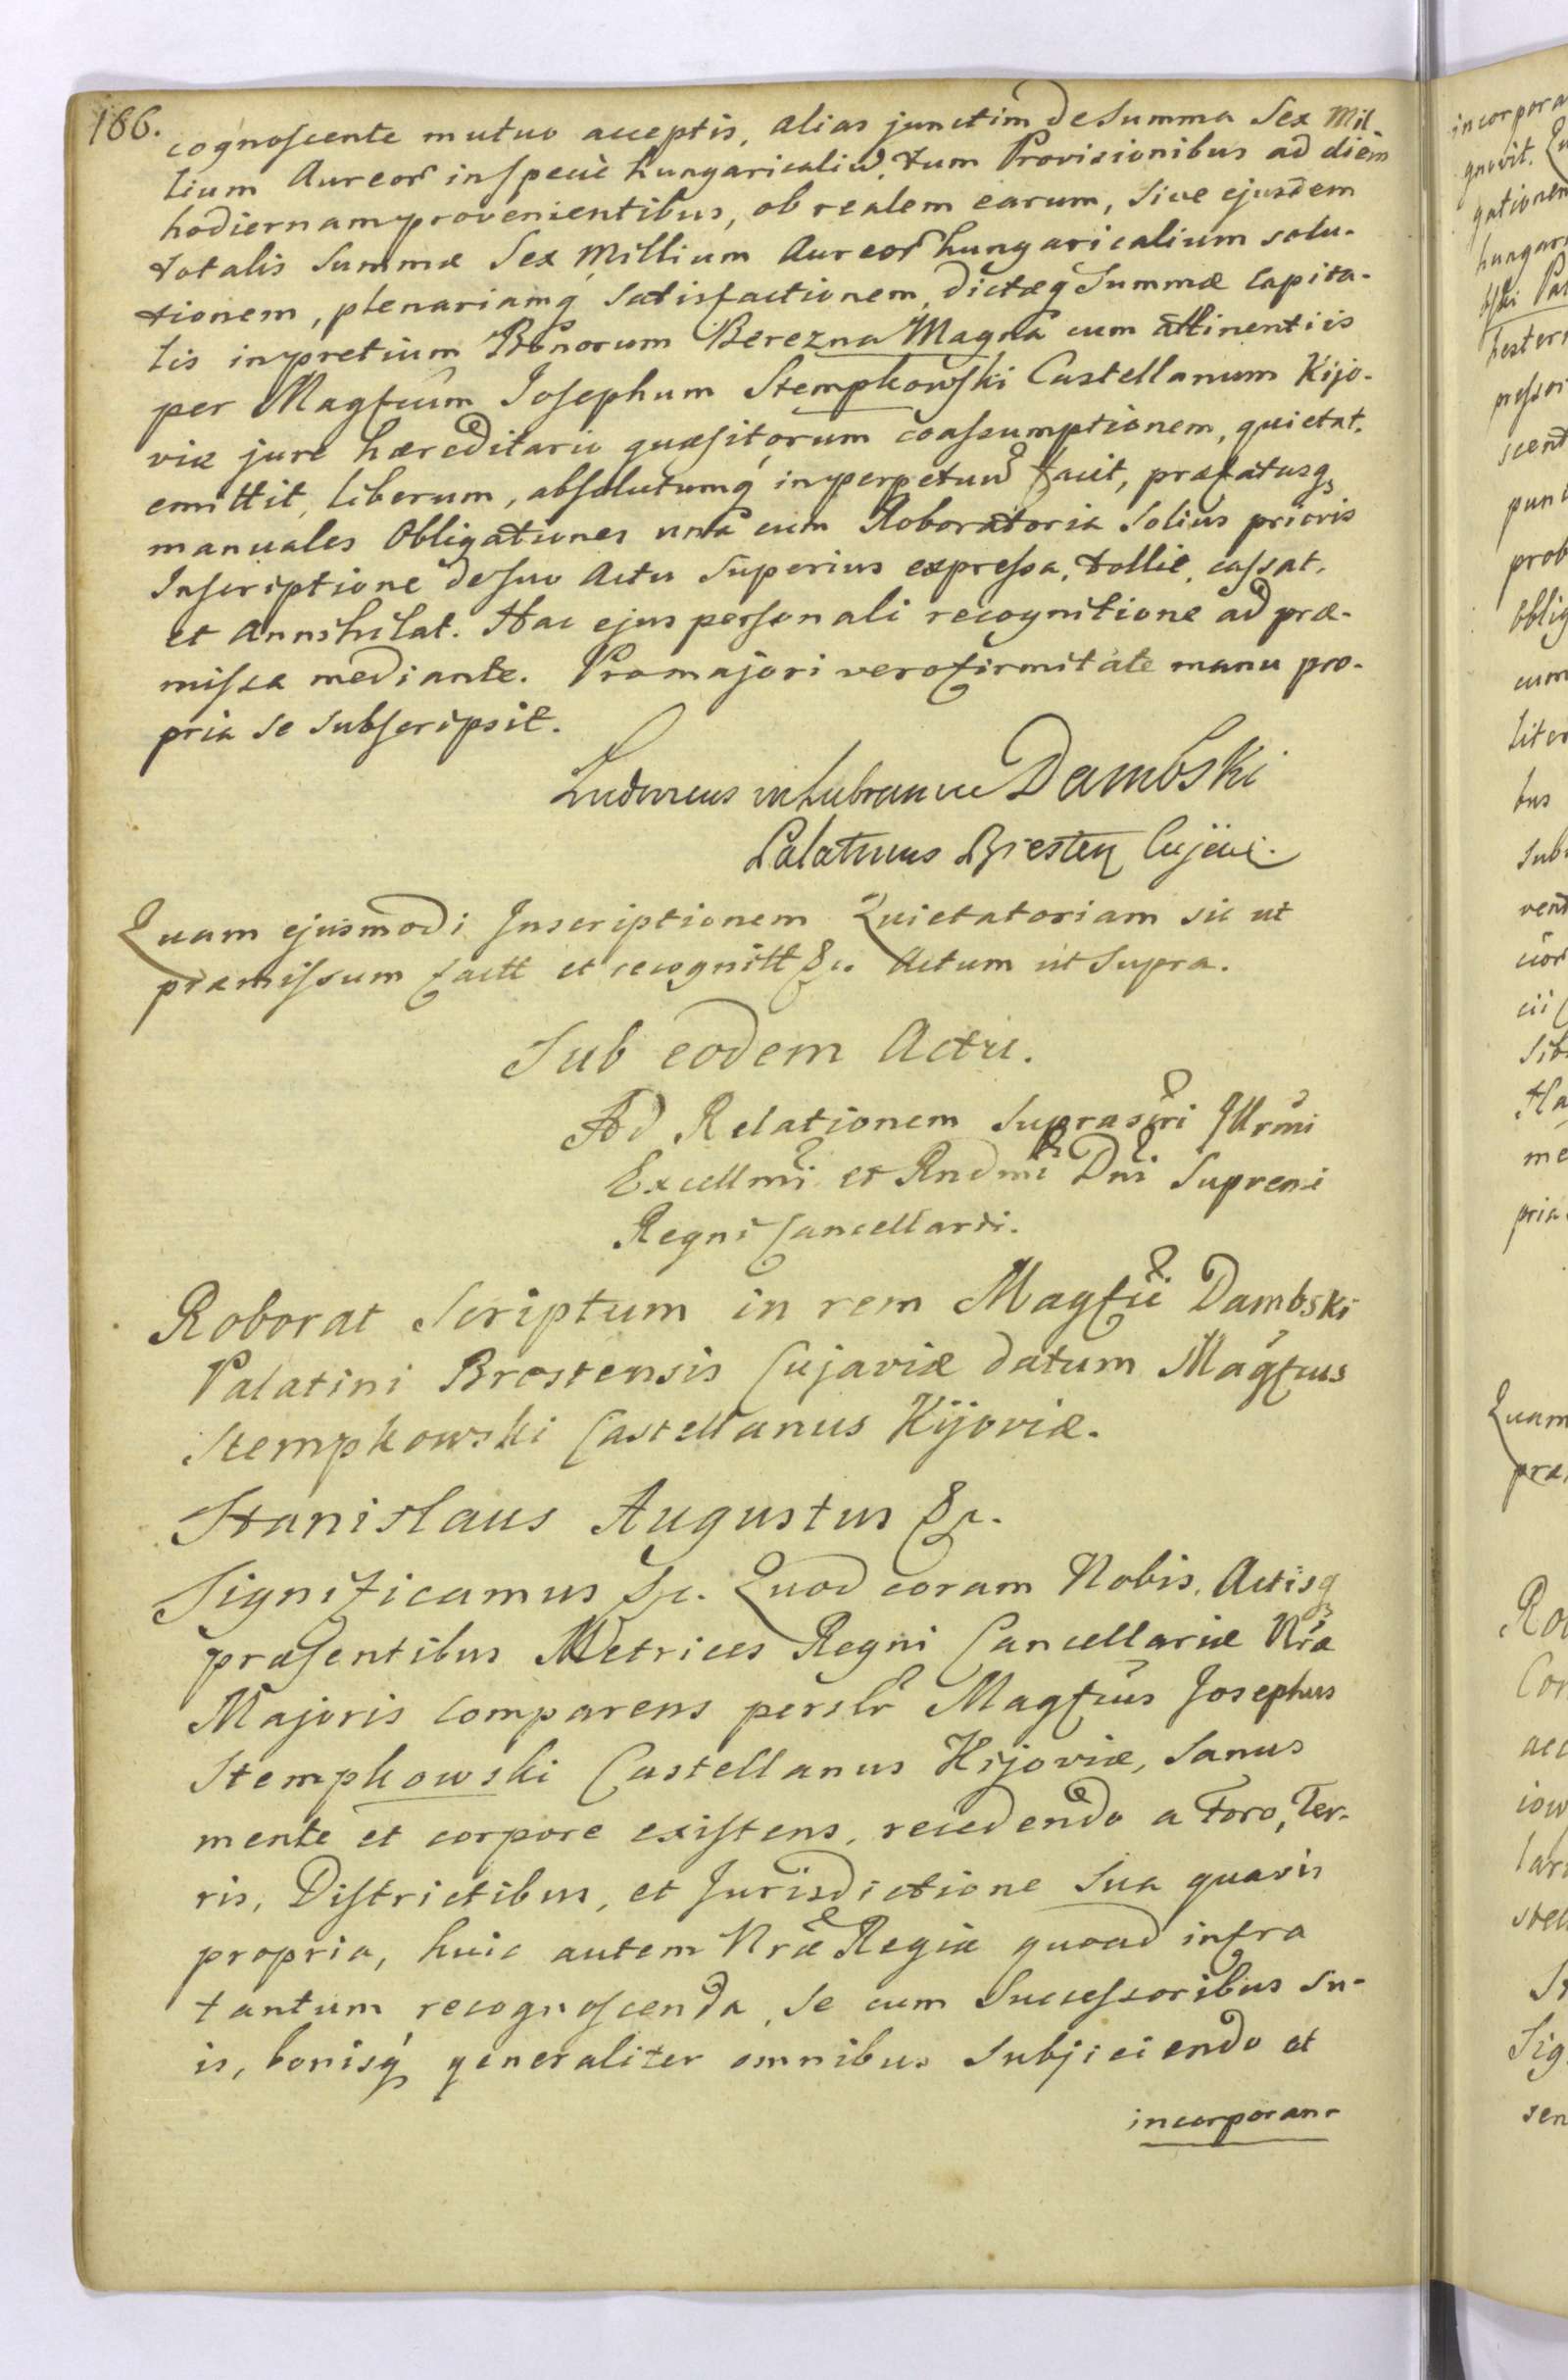 166.
cognoscente mutuo acceptis, alias junctim de Summa Sex Mil-
lium Aureor in specie hungaricaliu, tum Provisionibus ad diem
hodiernam provenientibus, ob realem earum, sive ejusdem
totalis Summæ Sex Millium Aureor hungaricalium solu-
tionem, plenariamq satisfactionem, dictæq Summæ Capita-
lis in pretium Bonorum Berezna Magna cum attinentiis
per Magfcum Josephum Stempkowski Castellanum Kijo-
viæ jure hæreditario quæsitorum coassumptionem, quietat,
emittit, liberum, absolutumq in perpetuu facit, præfatasq
manuales Obligationes una cum Roboratoria Solius prioris
Inscriptione de suo Actu Superius expressa, tollit, cassat,
et Annihilat. Hac ejus personali recognitione ad præ-
missa mediante. Pro majori vero firmitate manu pro-
pria se subscripsit.
Ludovicus in Lubraniec Dambski
Palatinus Bresten Cujavi.
Quam ejusmodi Inscriptionem Quietatoriam sic ut
præmissum factt et recognitt &c. Actum ut Supra.
Sub eodem Actu.
Ad Relationem Suprascri Illrmi
Excellmi et Rndmi Dni Supremi
Regni Cancellarii.
Roborat Scriptum in rem Magfci Dambski
Palatini Brestensis Cujaviæ datum Magfcus
Stempkowski Castellanus Kijoviæ.
Stanislaus Augustus &c.
Significamus &c. Quod coram Nobis, Actisq
præsentibus Metrices Regni Cancellariæ Nræ
Majoris comparens perslr Magfcus Josephus
Stempkowski Castellanus Kijoviæ, Sanus
mente et corpore existens, recedendo a Foro, Ter-
ris, Districtibus, et Jurisdictione Sua quavis
propria, huic autem Nræ Regiæ quoad infra
tantum recognoscenda, se cum Successoribus Su-
is, bonisq generaliter omnibus Subjiciendo et
incorporan-